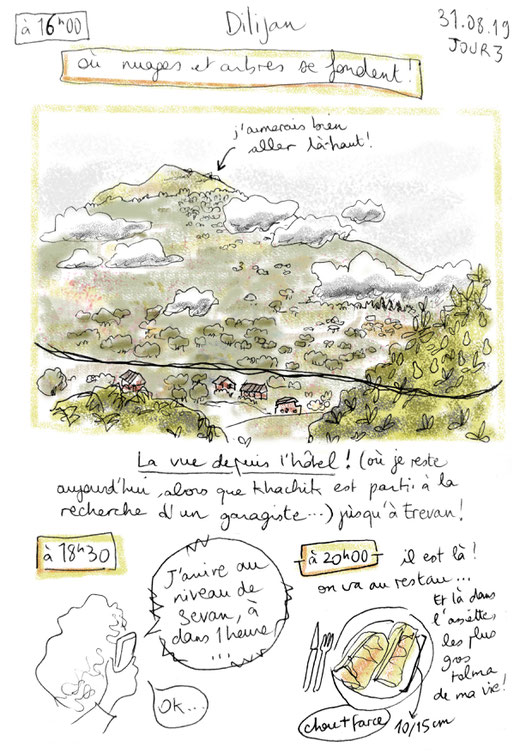 à 16h00
Dilijan
31.08.19
JOUR 3
où nuages et arbres se fondent !
j'aimerais bien
aller là-haut !
La vue depuis l'hôtel ! (où je reste
aujourd'hui, alors que Khachik est parti à la
recherche d'un garagiste...) jusqu'à Erevan !
à 18h30
J'arrive au
niveau de
Sevan, à
dans 1 heure
...
Ok...
à 20h00
il est là !
on va au restau...
Et là dans
l'assiettes
les plus
gros
tolma
de ma vie !
chou + farce
10/15 cm